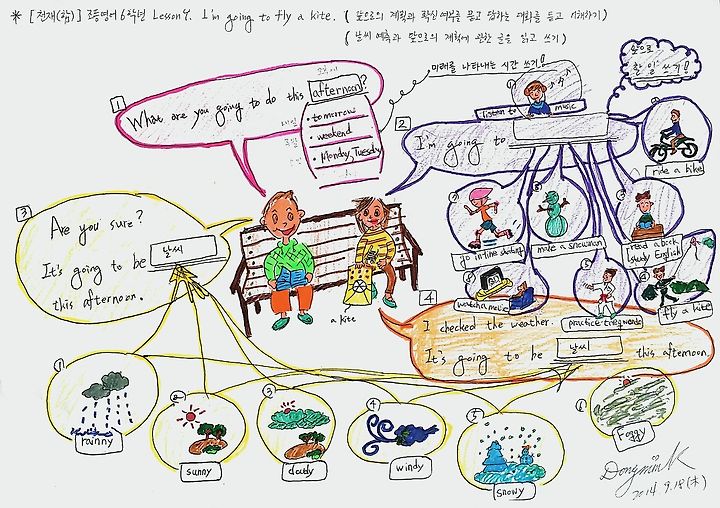 * [천재(함)] 초등영어 6학년 Lesson 9. I'm going to fly a kite. ( 앞으로의 계획과 확신 여부를 묻고 답하는 대화를 듣고 이해하기 )
( 날씨 예측과 앞으로의 계획에 관한 글을 읽고 쓰기 )
미래를 나타내는 시간 쓰기!
앞으로
할 일 쓰기!
1
What are you going to do this afternoon?
• tomorrow
• weekend
• Monday, Tuesday
2
I'm going to
listen to music
ride a bike
go inline skating
make a snowman
read a book
study English
watch a movie
practice taekwondo
fly a kite
3
Are you sure?
It's going to be 날씨
this afternoon.
a kite
4
I checked the weather.
It's going to be 날씨 this afternoon.
① rainny
② sunny
③ cloudy
④ windy
⑤ snowy
⑥ Foggy
Dongmin K
2014. 9. 18 (木)